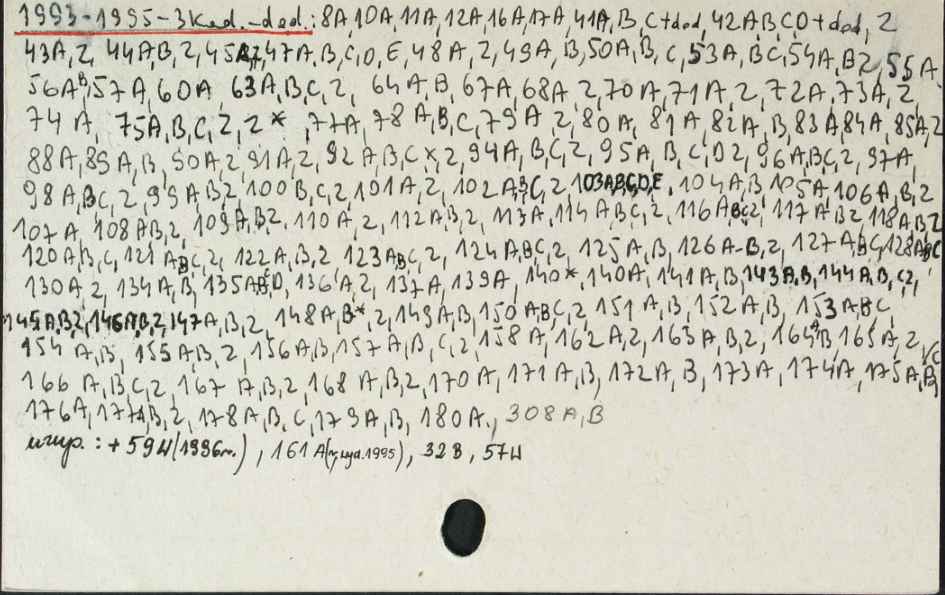 1993-1995-3Ked.-ded.: 8A,10A,11A,12A,16A,17A,41A,B,C+ded, 42A,B,C,D+ded, 2
43A,2, 44A,B,2, 47A,B,C,D,E,48A,2,49A,B,50A,B,C,53A,BC,54A,B2,55A
56AB,57A,60A 63A,B,C,2, 64A,B,67A,68A 2,70A,71A,2,72A,73A,2,
74A, 75A,B,C,2,2*, 77A,78A,B,C,79A,2,80A,81A,82A,B,83A,84A,85A,2
88A,89A,B,90A,2,91A,2,92A,B,Cx,2,94A,B,C,2,95A,B,C,D2,96A,BC,2,97A,
98A,BC,2,99A,B2,100B,C,2,101A,2,102A,BC,2,103ABCD,E, 104A,B,105A,106A,B,2
107A,108AB,2,109A,B2,110A,2,112A,B,2,113A,114ABC,2,116ABC2,117AB2,118A,B2
120A,B,C,121A,BC,2,122A,B,2,123A,BC,2,124ABC,2,125A,B,126A-B,2,127A,BC,128ABC
130A 2,134A,B,135ABCD,136A,2,137A,139A,140*,140A,141A,B,143A,B,144A,B,C2,
145A,B2,146AB,2,147A,B,2,148A,B*,2,149A,B,150ABC,2,151A,B,152A,B,153A,BC,
154A,B,155A,B,2,156A,B,157A,B,C,2,158A,162A,2,163A,B,2, 165A,2
166A,B,C,2,167A,B,2,168A,B,2,170A,171A,B,172A,B,173A,174A,175A,B,C
176A,177AB,2,178A,B,C,179A,B,180A., 308A,B
: +59И(1996г.), 161A 1995), 32B, 57И